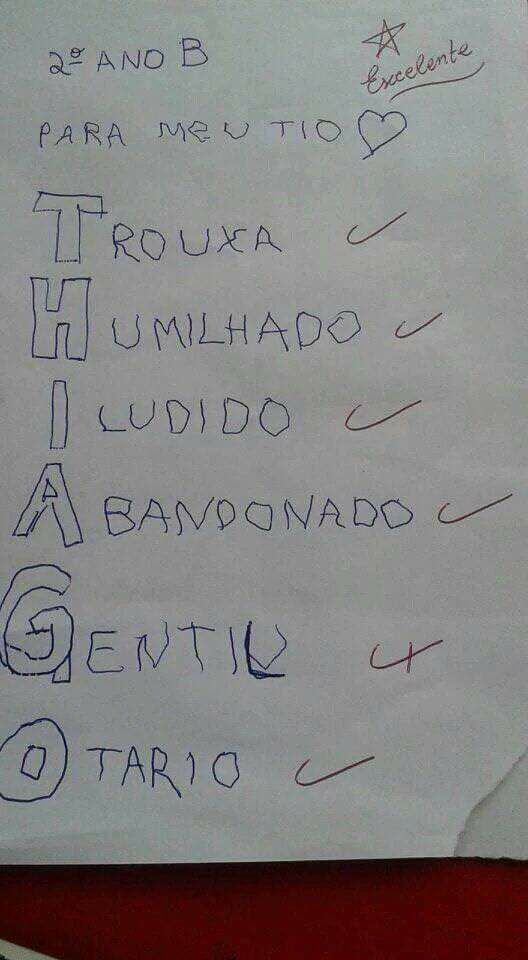 2º ANO B
Excelente
PARA MEU TIO
TROUXA
HUMILHADO
ILUDIDO
ABANDONADO
GENTIU
OTARIO